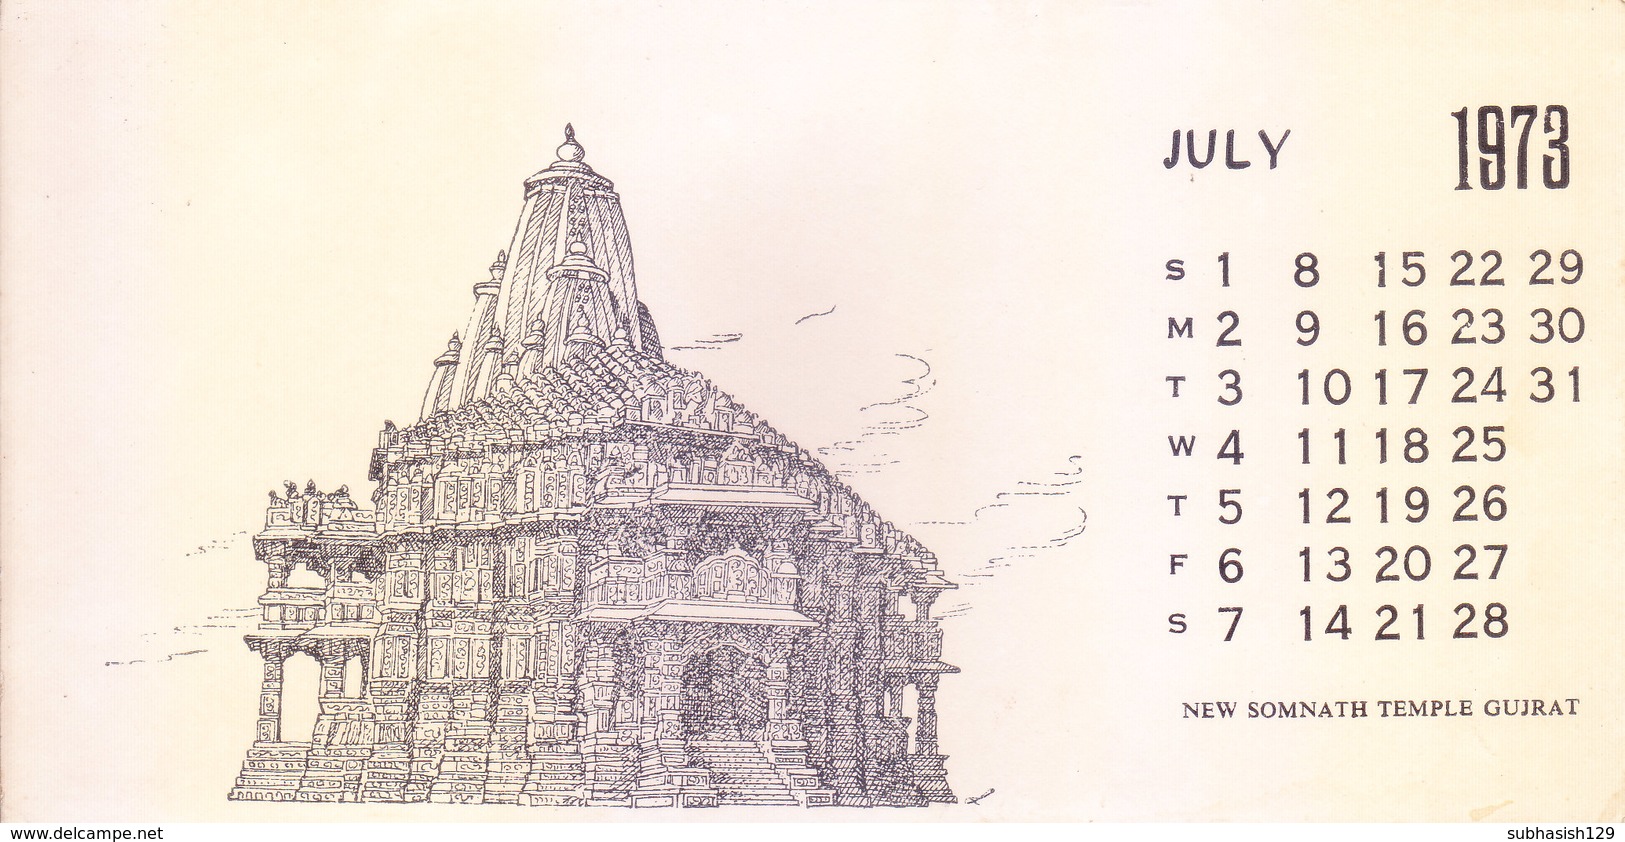 JULY 1973
S 1 8 15 22 29
M 2 9 16 23 30
T 3 10 17 24 31
W 4 11 18 25
T 5 12 19 26
F 6 13 20 27
S 7 14 21 28
NEW SOMNATH TEMPLE GUJRAT
www.delcampe.net
subhasish129